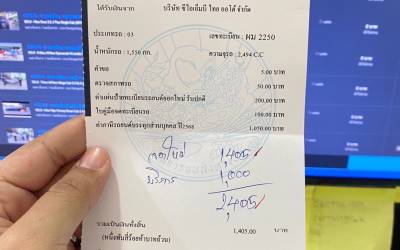 ได้รับเงินจาก บริษัท ซีไอเอ็มบี ไทย ออโต้ จำกัด
ประเภทรถ : 03 เลขทะเบียน : ผม 2250
น้ำหนักรถ : 1,550 กก. ความจุรถ : 2,494 C.C
ค่าขอ 5.00 บาท
ตรวจสภาพรถ 50.00 บาท
ค่าแผ่นป้ายทะเบียนรถยนต์ออกใหม่ รับปกติ 200.00 บาท
ใบคู่มือจดทะเบียนรถ 100.00 บาท
ค่าภาษีรถยนต์บรรทุกส่วนบุคคล ปี2568 1,050.00 บาท
1,405
บริการ 1,000
2,405
รวมเป็นเงินทั้งสิ้น 1,405.00 บาท
(หนึ่งพันสี่ร้อยห้าบาทถ้วน)